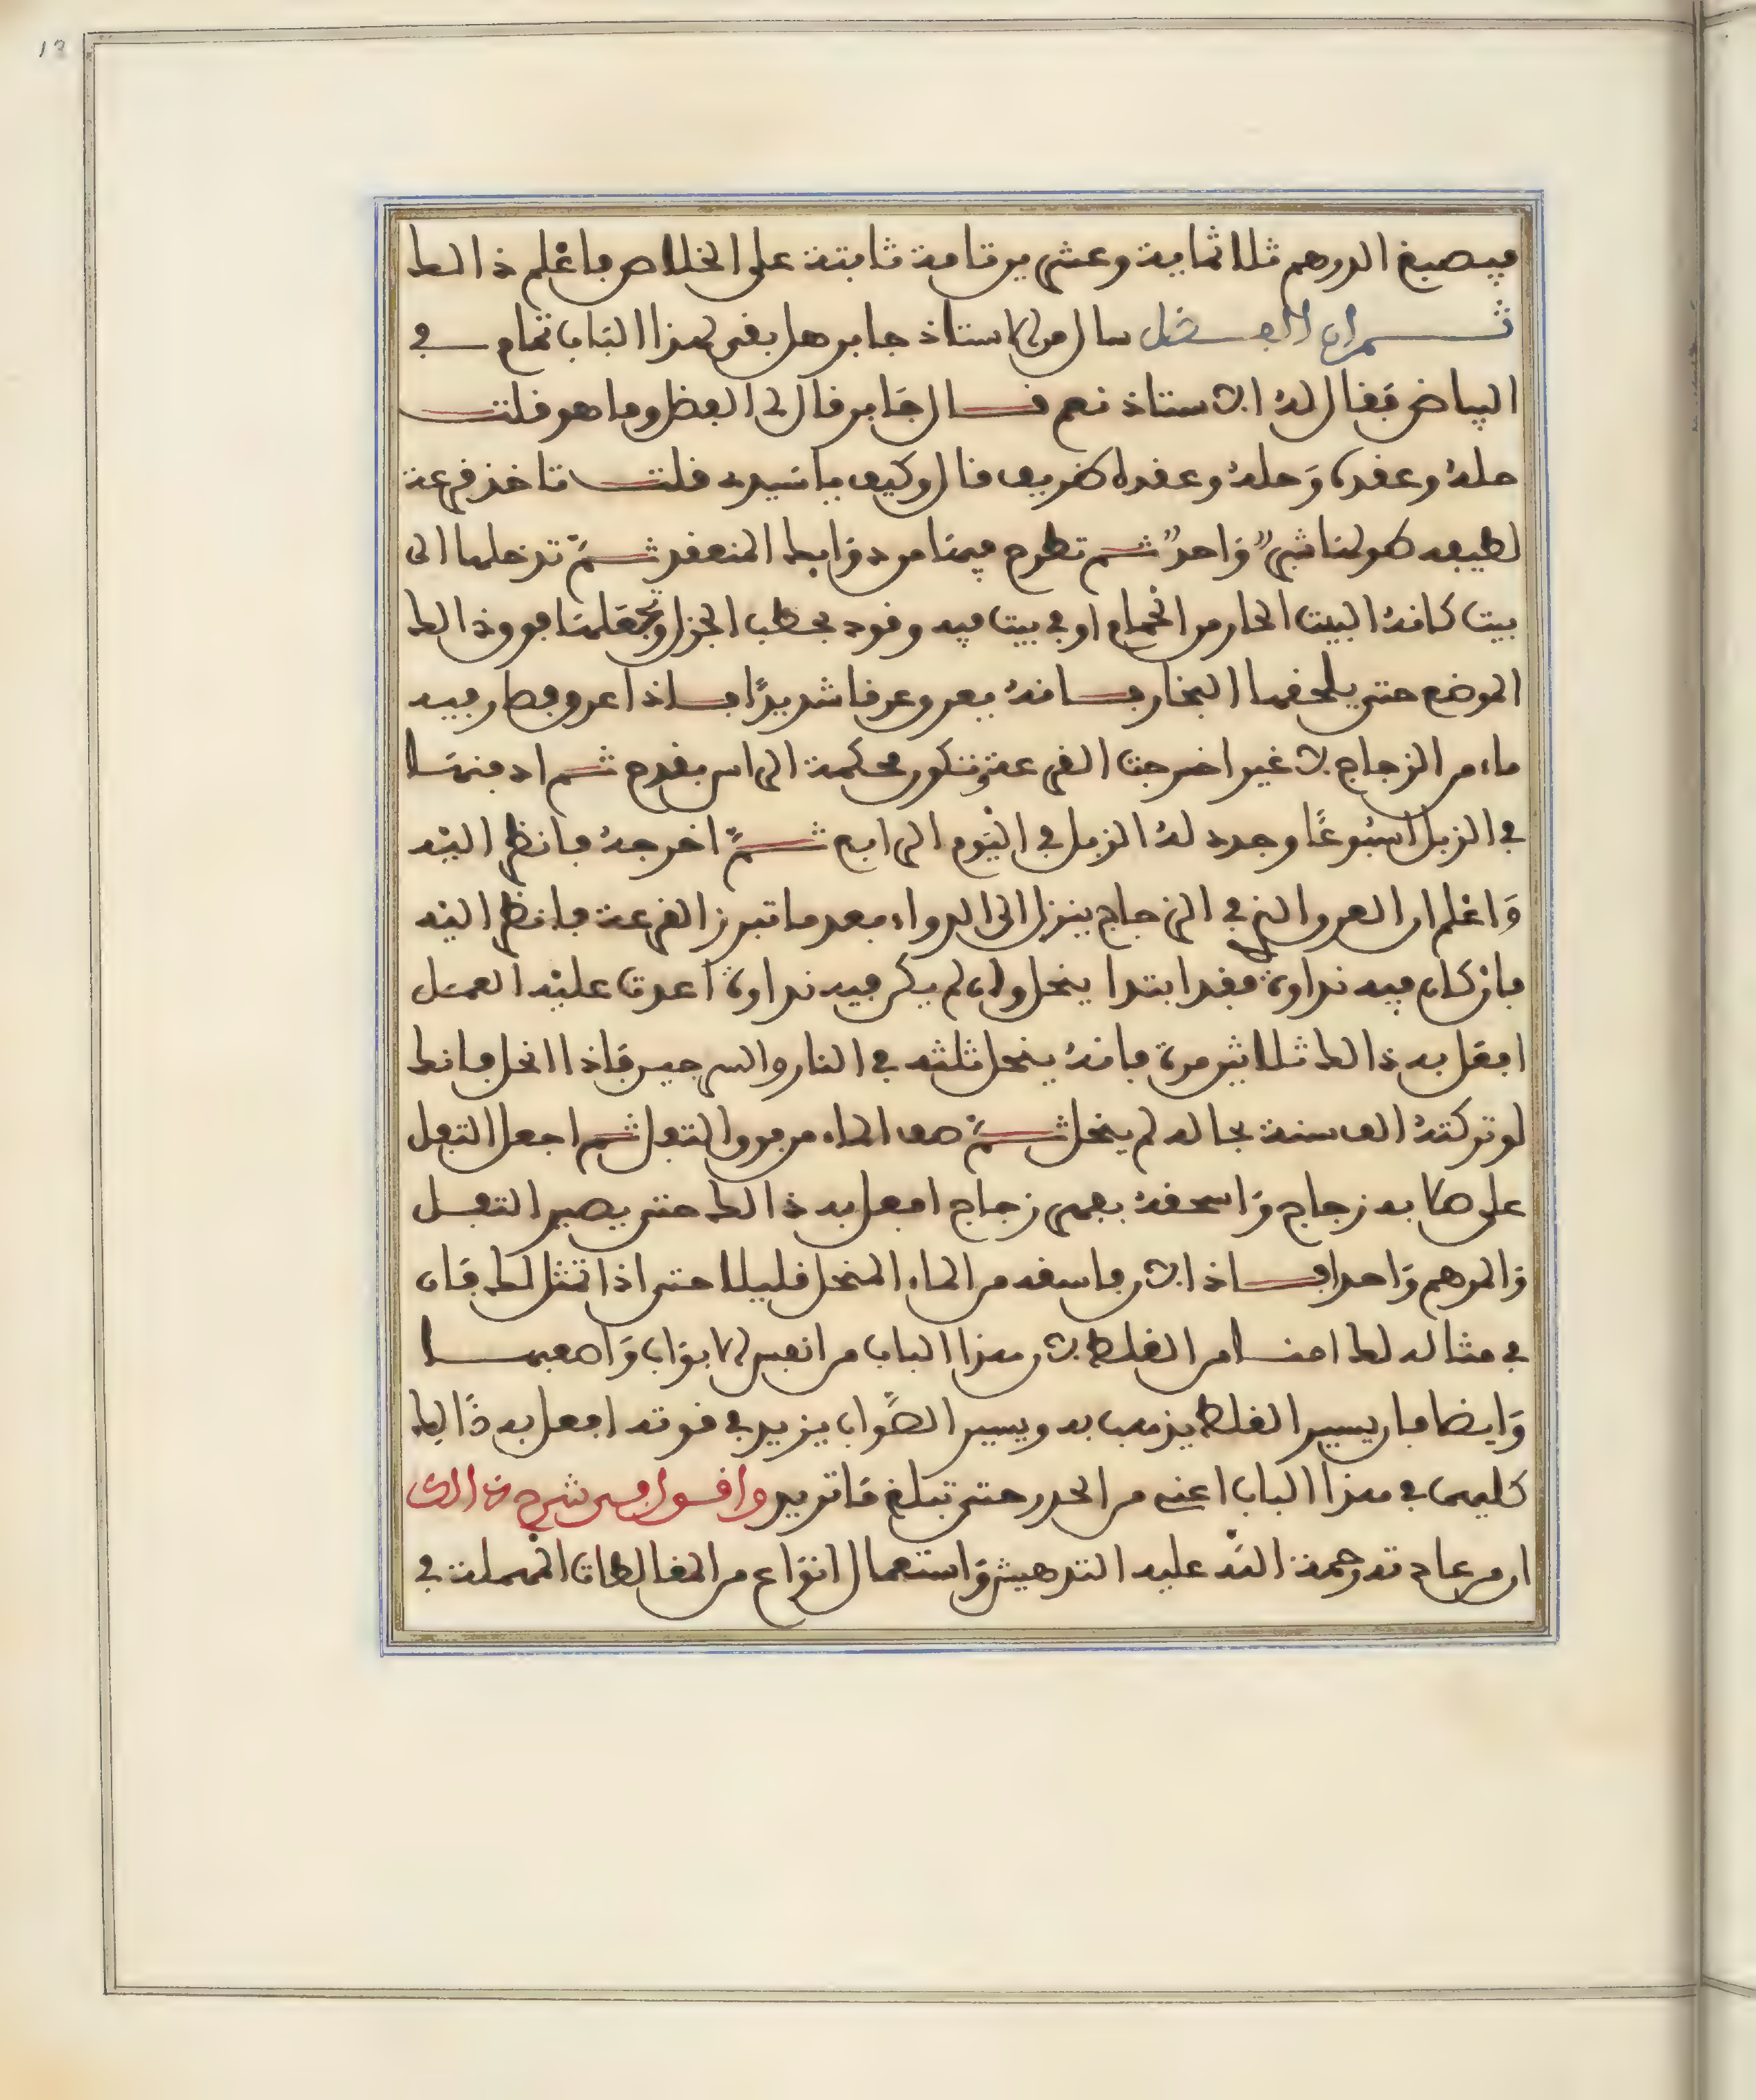 13
فيصبغ الدرهم ثلاثماية وعشرين قامة ثابتة على الخلاص فاعلم ذالك
ثم ان الفضل سال من الاستاذ جابر هل بقى لهذا الباب تمام في
البياض فقال له الاستاذ نعم قال جابر قال لي الفضل وما هو قلت
حله وعقده وحله وعقده قال وكيف ياسيدي قلت تاخذ قرعة
لطيفة طولها شبر واحد ثم تطرح فيها من دوابك المنعقد ثم تدخلها الى
بيت كانه البيت الحار من الحمام او في بيت فيه وقود بحطب الجزل وتجعلها فوق ذالك
الموضع حتى يلحقها البخار فانه يعرق عرقا شديدًا فاذا عرق وصار فيه
ماء من الزجاج لا غير اخرجت القرعة وتكون محكمة الراس بقدح ثم ادفنها
في الزبل اسبوعًا وجدد له الزبل في اليوم الرابع ثمً اخرجه فانظر اليه
وَاعلم ان العرق الذي في الزجاج ينزل الى الدواء بعد ما تبرز القرعة فانظر اليه
فان كان فيه نداوة فقد ابتدا ينحل وان لم يكن فيه نداوة اعدت عليه العمل
افعل به ذالك ثلاثين مرة فانه ينحل ثلثه في النار والسرجين فاذا انحل فانك
لو تركته الف سنة بحاله لم ينحل ثم صف الماء من فوق التفل ثم اجعل التفل
على صلابه زجاج وَاسحقه بفهر زجاج افعل به ذالك حتى يصير التفل
والمرهم وَاحدا فاذا لان فاسقه من الماء المنحل قليلا حتى اذا تمثل لك فان
في مثاله لك امنا من الغلط لان هذا الباب من انفس الابواب وَاصعبها
وَايضا فان يسير الغلط يذهب به ويسير الصواب يزيد في قوته افعل به ذَالك
كليهما في هذا الباب اعني من الحدر حتى تبلغ مَا تريد واقول في شرح ذالك
ان من عادته رحمة الله عليه التدهيش وَاستعمال انوَاع من المغالطات المهملة في